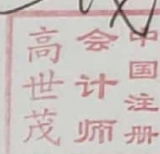 中国注册
会计师
高世茂